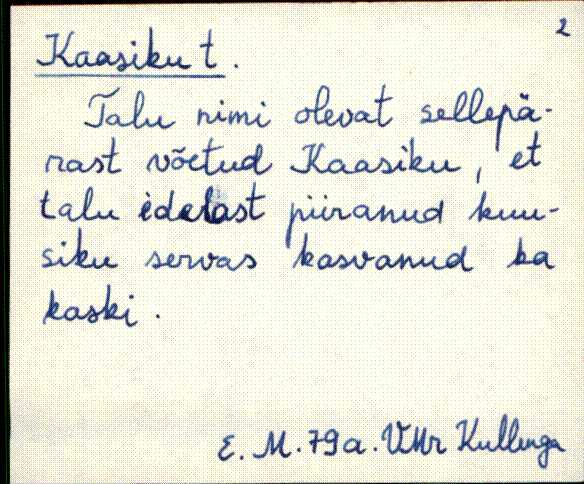 2
Kaasiku t.
Talu nimi olevat sellepä-
rast võetud Kaasiku, et
talu edelast piiranud kuu-
siku servas kasvanud ka
kaski.
E. M. 79a. VMr Kullenga